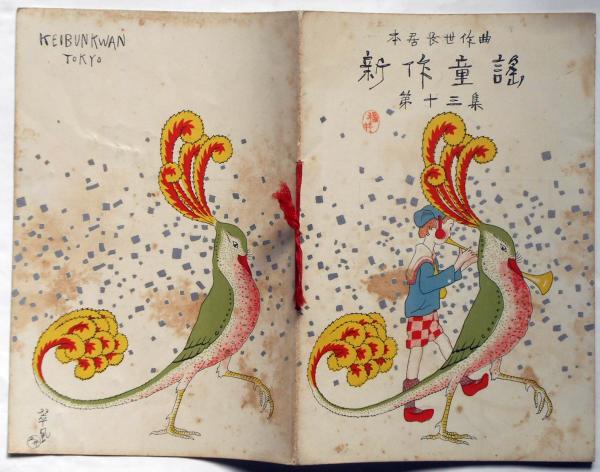 KEIBUNKWAN
TOKYO
本居長世作曲
新作童謡
第十三集